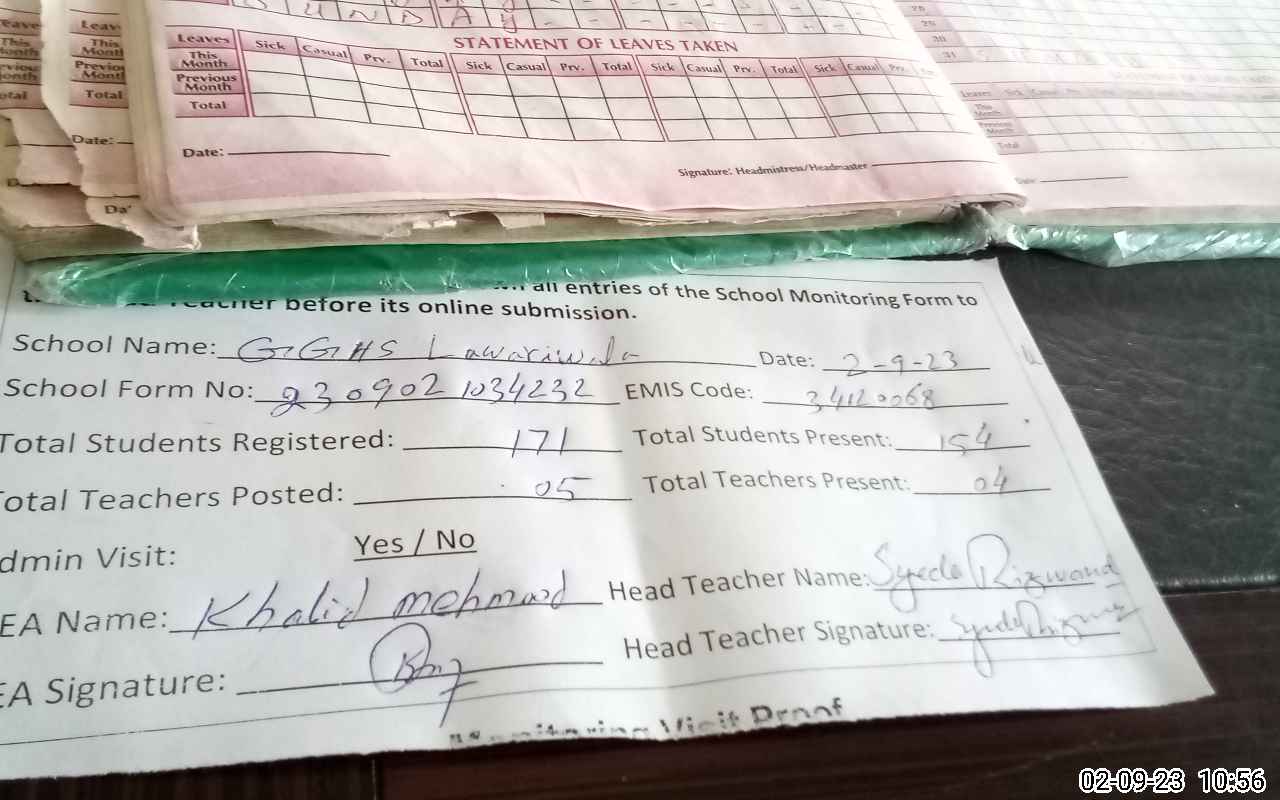 SUNDAY
STATEMENT OF LEAVES TAKEN
Leaves Sick Casual Prv. Total Sick Casual Prv. Total Sick Casual Prv. Total Sick Casual Prv.
This Month
Previous Month
Total
Date:
Signature: Headmistress/Headmaster
30
31
Leaves Sick
This Month
Previous Month
Total
Date:
all entries of the School Monitoring Form to
Teacher before its online submission.
School Name: GGHS Lawariwala Date: 2-9-23
School Form No: 230902 1034232 EMIS Code: 34120068
Total Students Registered: 171 Total Students Present: 154
Total Teachers Posted: 05 Total Teachers Present: 04
dmin Visit: Yes / No
EA Name: Khalid mehmood Head Teacher Name: Syeda Rizwana
EA Signature: Head Teacher Signature: Syeda
Monitoring Visit Proof
02-09-23 10:56